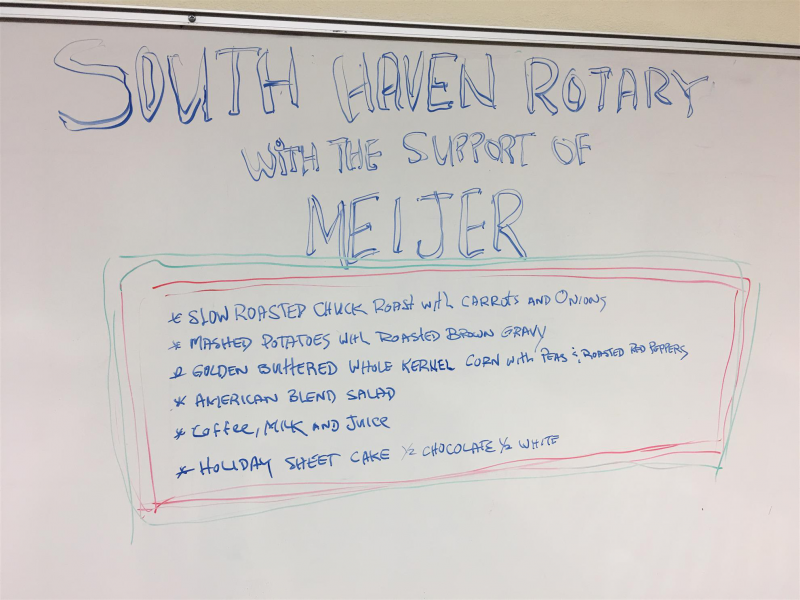 SOUTH HAVEN ROTARY
WITH THE SUPPORT OF
MEIJER
* SLOW ROASTED CHUCK ROAST with CARROTS AND ONIONS
* MASHED POTATOES with ROASTED BROWN GRAVY
* GOLDEN BUTTERED WHOLE KERNEL CORN with PEAS & ROASTED RED PEPPERS
* AMERICAN BLEND SALAD
* COFFEE, MILK AND JUICE
* HOLIDAY SHEET CAKE 1/2 CHOCOLATE 1/2 WHITE